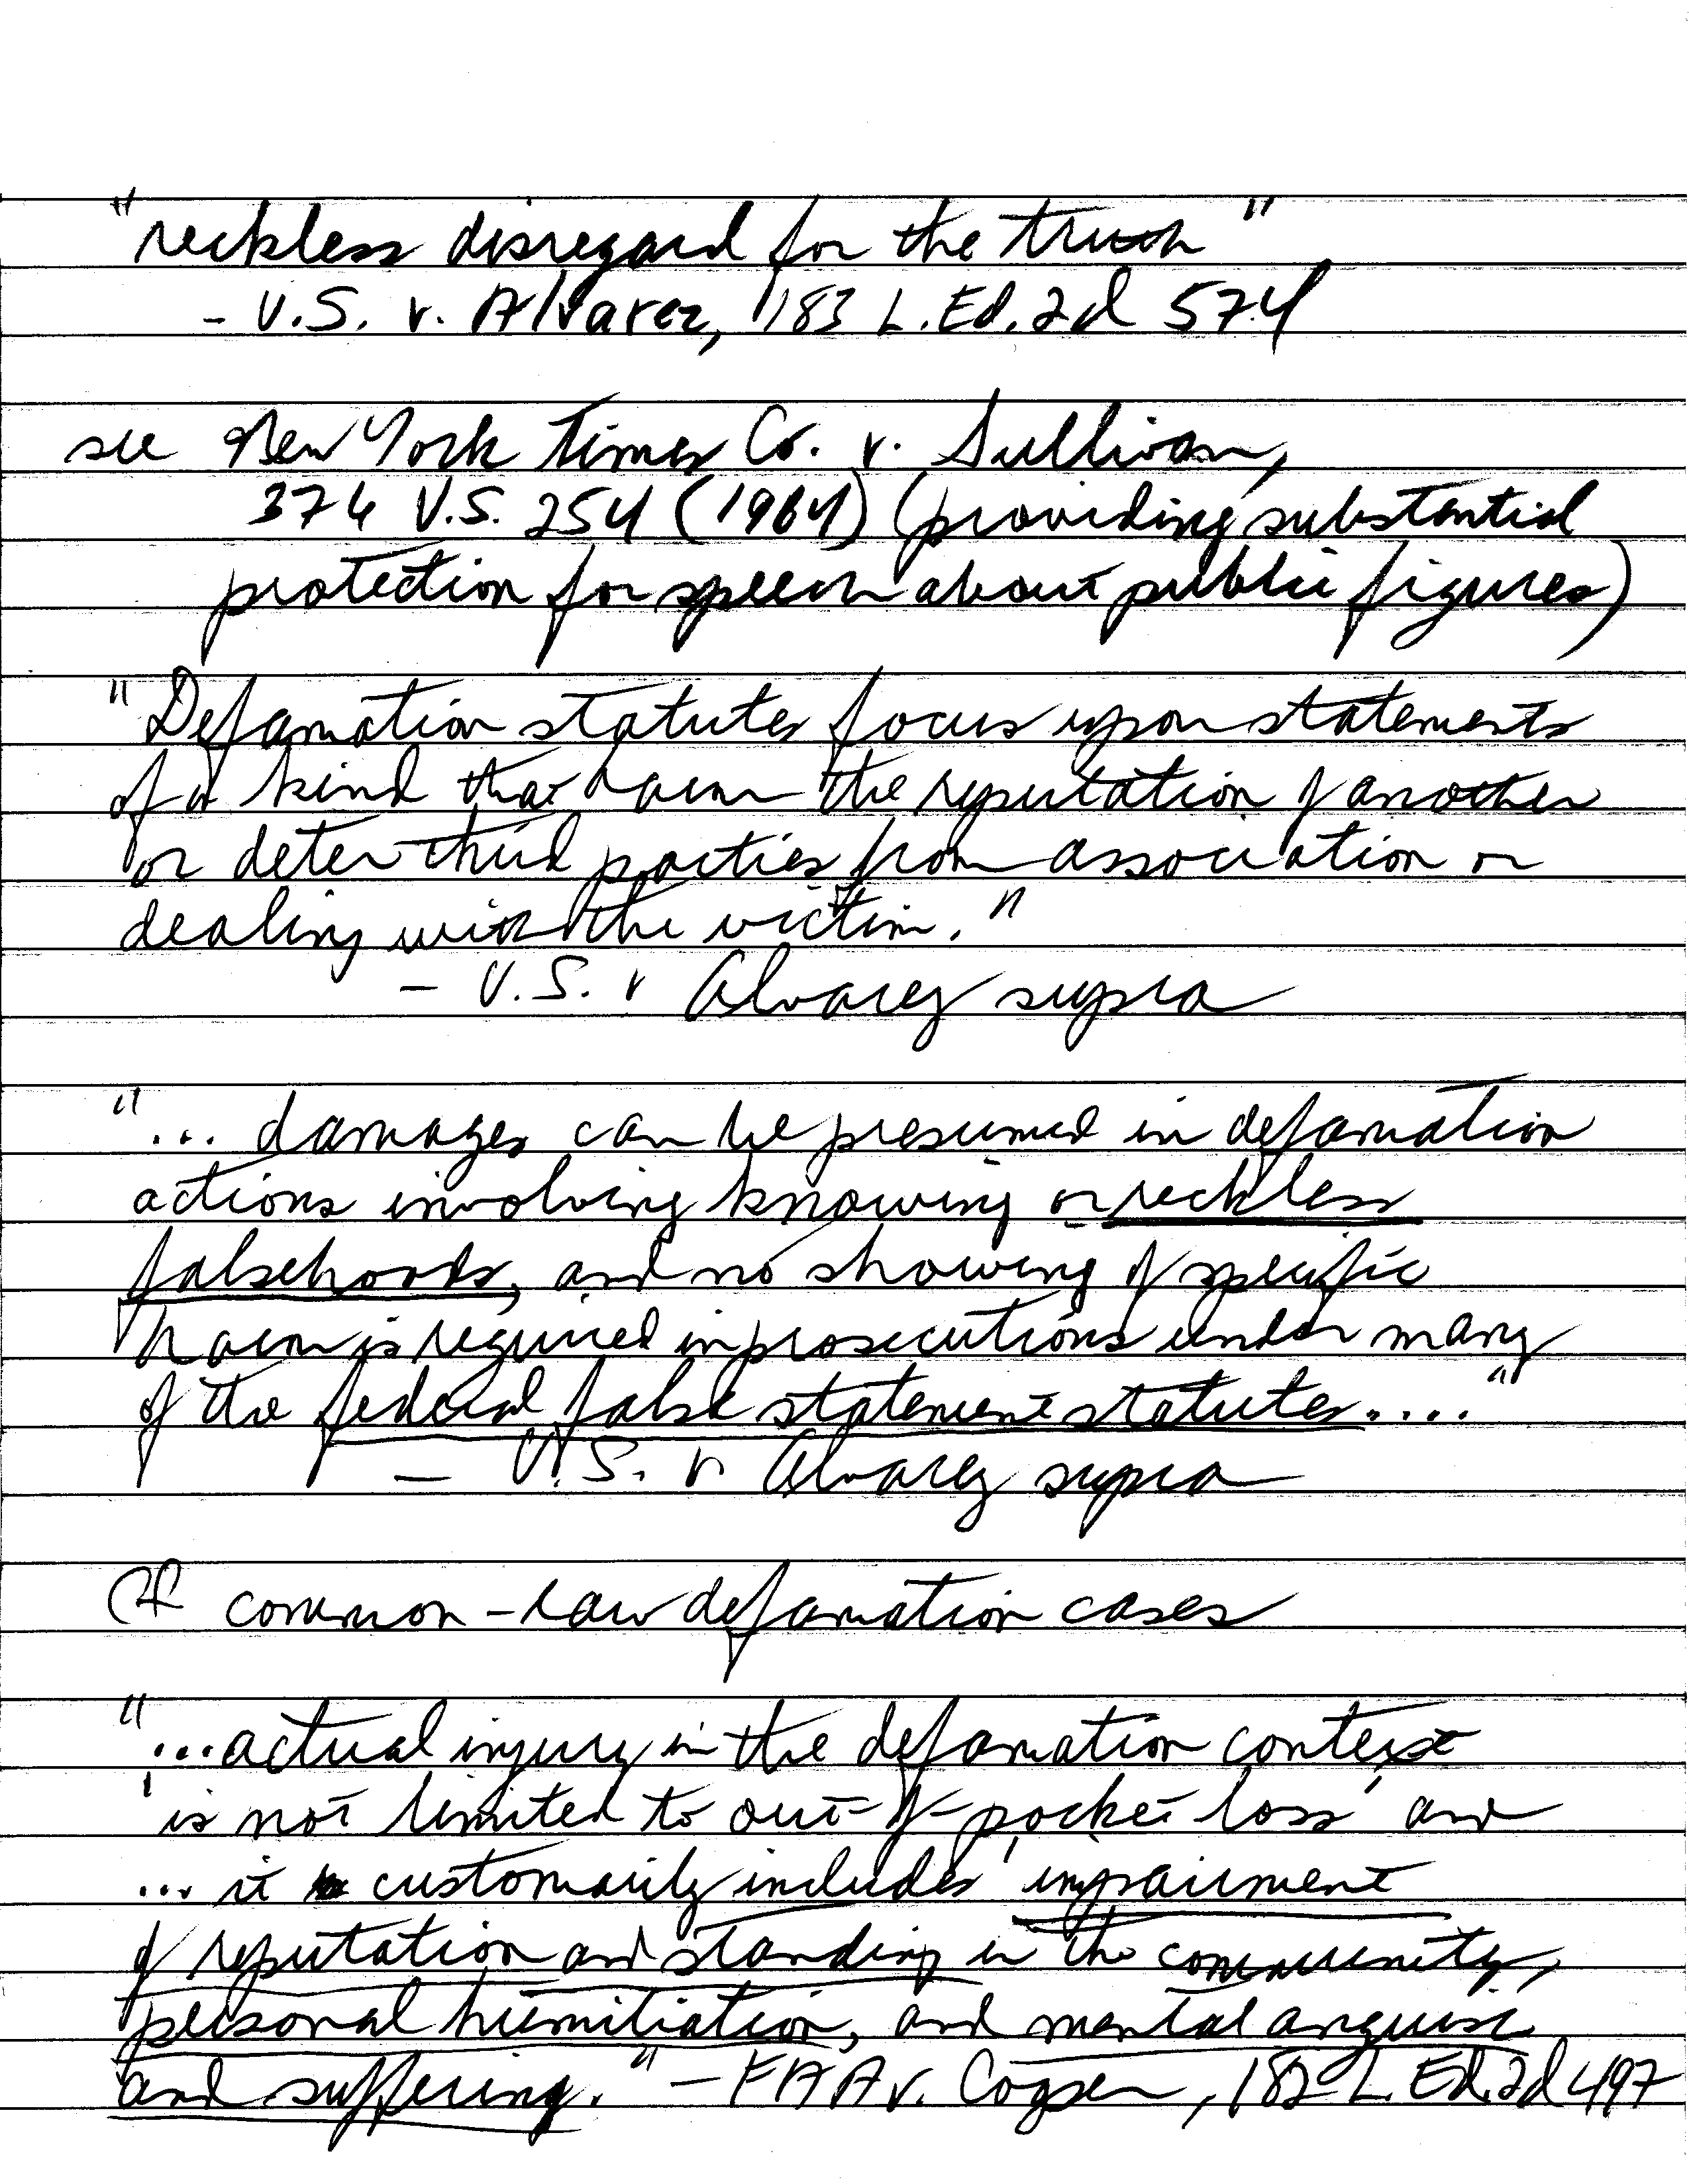 "reckless disregard for the truth"
- U.S. v. Alvarez, 183 L.Ed.2d 574
see New York Times Co. v. Sullivan,
376 U.S. 254 (1964) (providing substantial
protection for speech about public figures)
"Defamation statutes focus upon statements
of a kind that harm the reputation of another
or deter third parties from association or
dealing with the victim."
- U.S. v Alvarez supra
"... damages can be presumed in defamation
actions involving knowing or reckless
falsehoods, and no showing of specific
harm is required in prosecutions under many
of the federal false statement statutes...."
- U.S. v. Alvarez supra
Cf common-law defamation cases
"...actual injury in the defamation context
'is not limited to out-of-pocket loss' and
... it customarily includes 'impairment
of reputation and standing in the community,
personal humiliation, and mental anguish
and suffering." - FAA v. Cooper, 182 L.Ed.2d 497